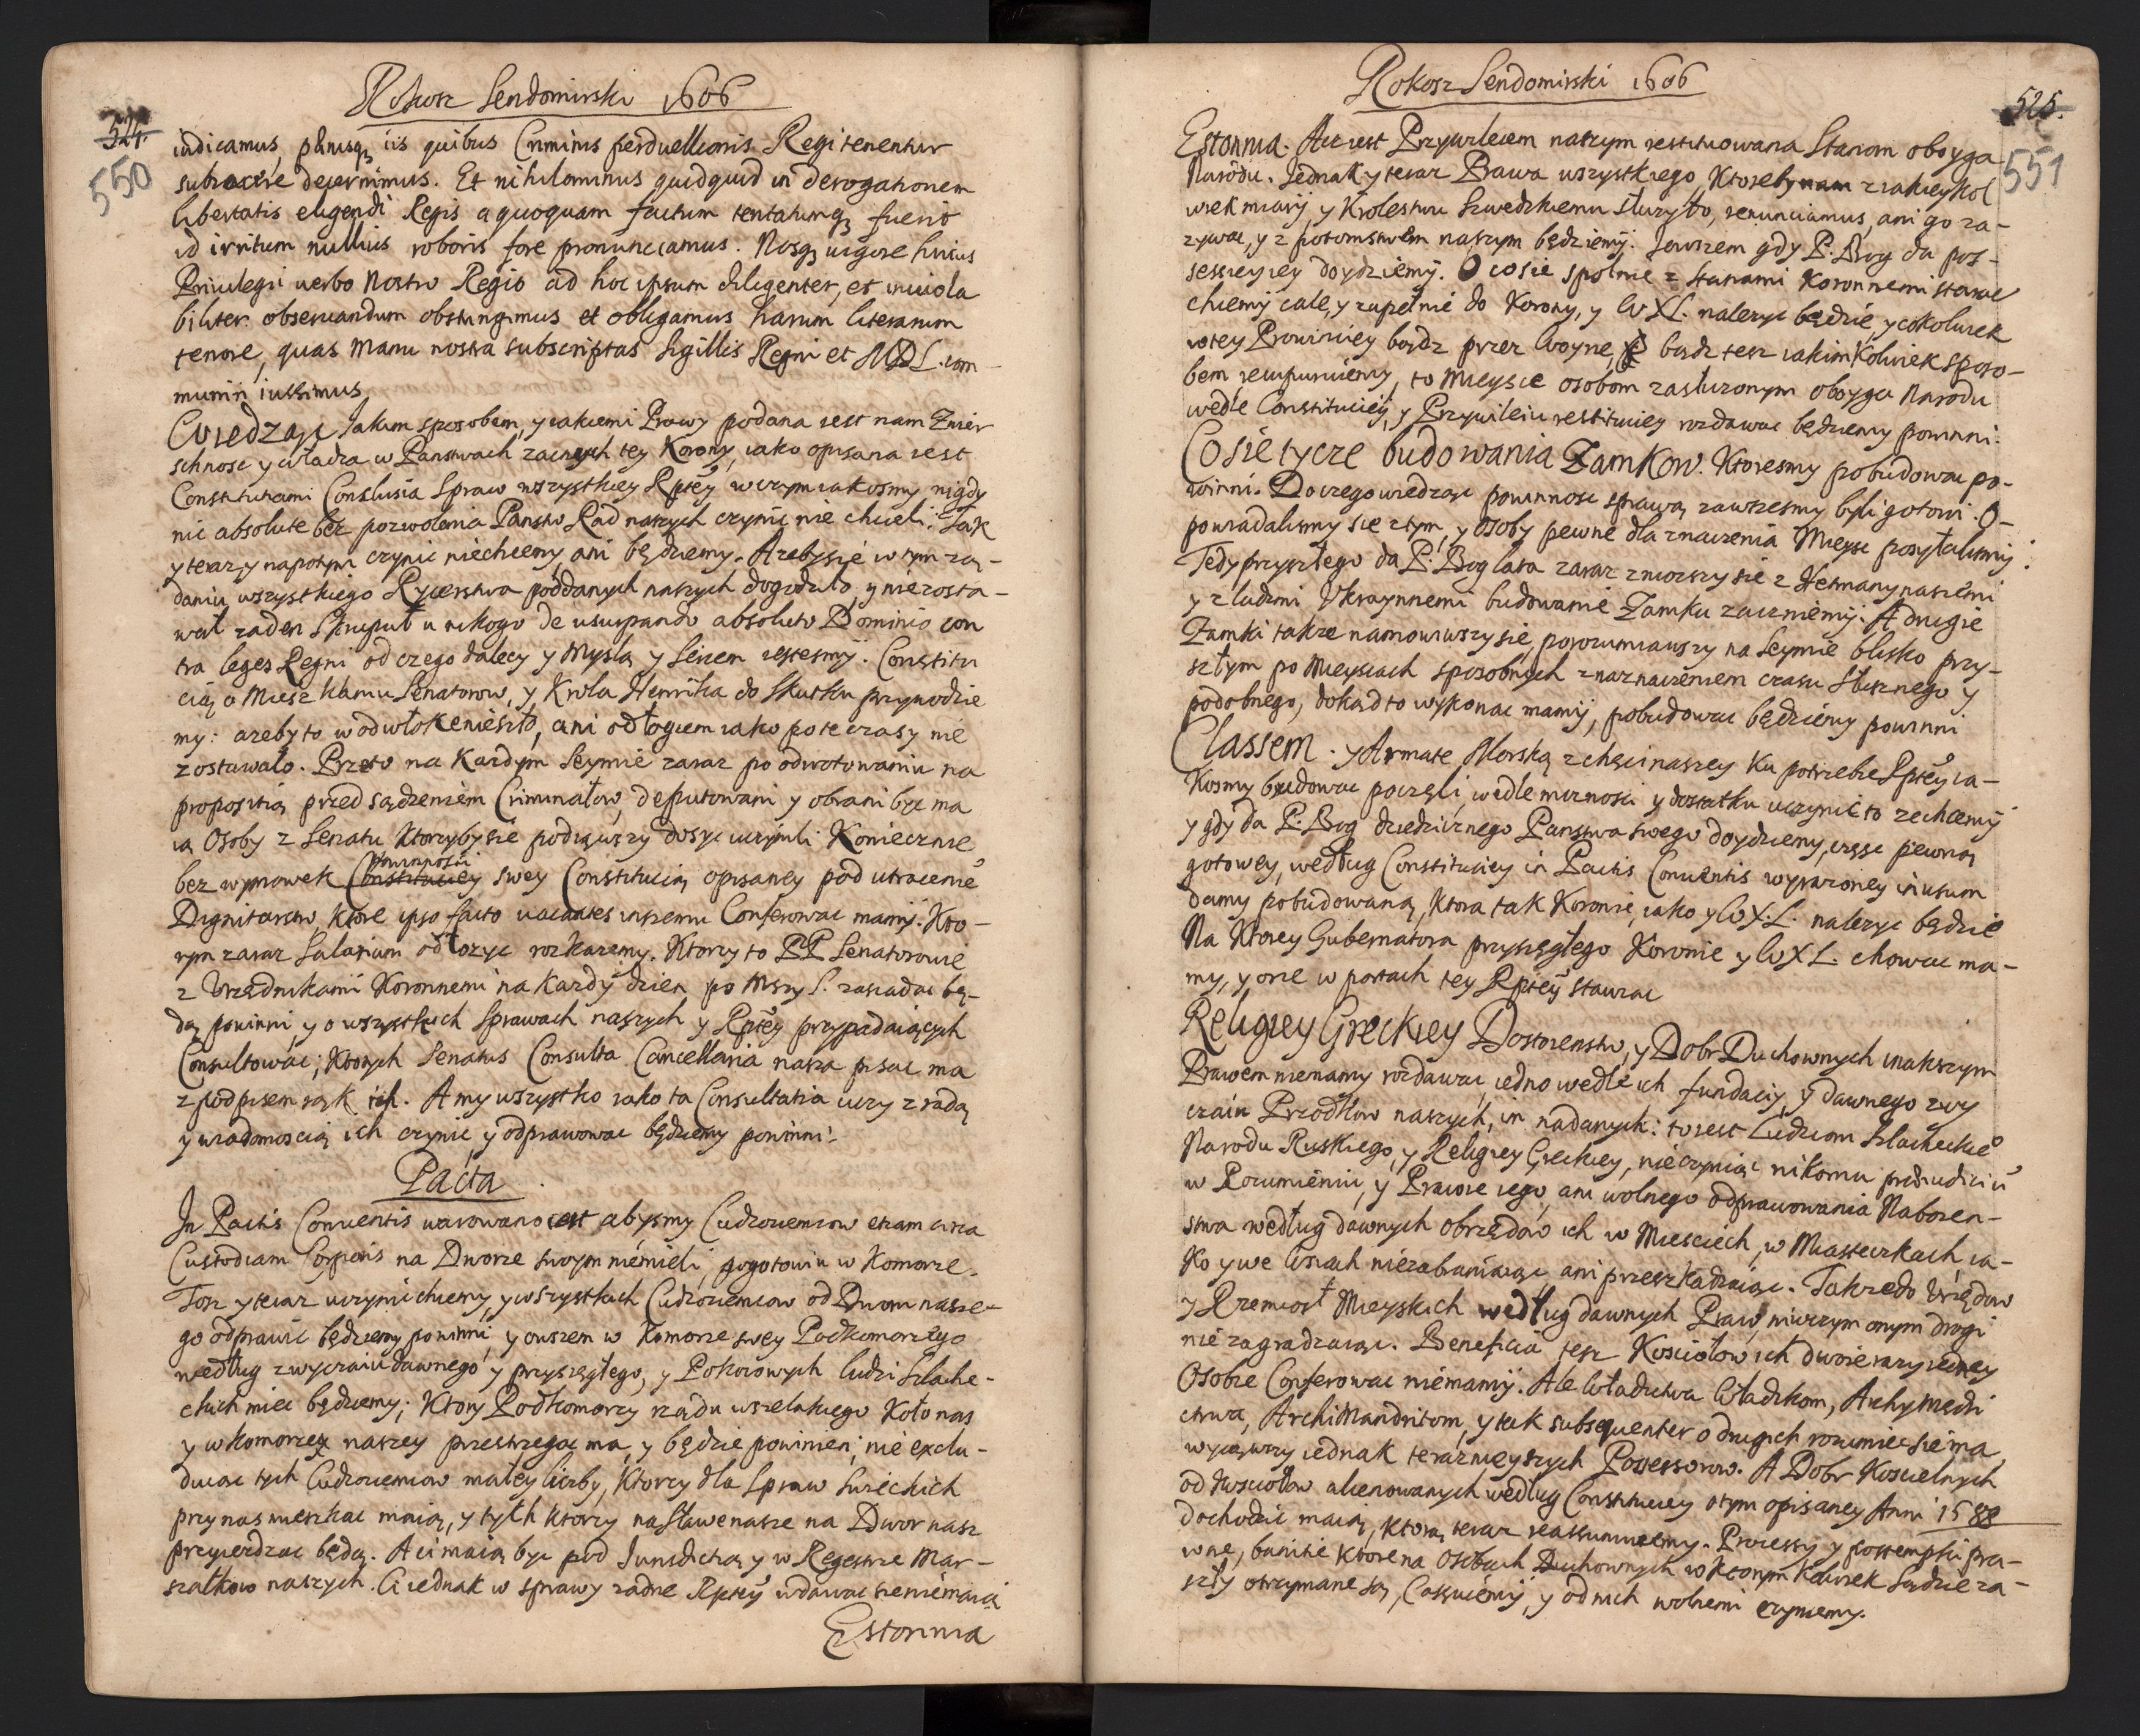 Rokosz Sendomirski 1606
524.
550
indicamus, planusqȝ iis quibus Criminis perduellionis Regi tenentur
subiacere decernimus. Et nihilominus quidquid in derogationem
libertatis eligendi Regis a quoquam factum tentatumqȝ fuerit
id irritum nullius roboris fore pronunciamus. Nosqȝ uigore huius
Priuilegii uerbo Nostro Regio ad hoc ipsum diligenter, et inuiola
biliter obseruandum obstringimus et obligamus harum literarum
tenore, quas Manu nostra subscriptas Sigillis Regni et MDL. com-
muniri iussimus
Wiedząc Jakim sposobem, y iakiemi Prawy podana iest nam Zwier
schnosc y władza w Panstwach zacnych tey Korony, iako opisana iest
Constitutami Conclusia Spraw wszystkiey Rptey w czym iakosmy nigdy
nic absolute bez pozwolenia Panstw Rad naszych czynic nie chcieli. Tak
y teraz y napotym czynic niechcemy, ani będziemy. A zeby się w tym żą-
daniu wszystkiego Rycerstwa poddanych naszych dogodziło, y nie zosta-
wał zaden Skrupuł u nikogo de usurpando absoluto Dominio con
tra leges Regni od czego dalecy y Myslą y Sercem iestesmy. Constitu
cią o Mieszkaniu Senatorow, y Krola Henrika do Skutku przywodzie
my: azeby to w odwłoke nieszło, ani odłogiem iako po te czasy nie
zostawało. Przeto na Kazdym Seymie zaraz po odwotowaniu na
propositią przed sądzeniem Criminałow, deputowani y obrani byc ma
ią Osoby z Senatu Ktorzyby sie podiąwszy dosyc uczynili Koniecznie
bez wymowek Constituciey powinnosci swey Constitucią opisaney pod utracenie
Dignitarstw, ktore ipso facto uacantes inszemu Conferowac mamy. Kto-
rym zaraz Salarium odłozyc rozkazemy. Ktorzy to PP Senatorowie
z Urzędnikami Koronnemi na Kazdy dzien po Mszy S. zasiadac bę-
dą powinni, y o wszystkich Sprawach naszych y Rptey przypadaiących
Consultowac; Ktorych Senatus Consulta Cancellaria nasza pisac ma
z podpisem rąk ich. A my wszystko iako ta Consultatia uczy z radą
y wiadomoscią ich czynic, y odprawowac będziemy powinni.
Pacta
In Pactis Conuentis warowano iest abysmy Cudzoziemcow etiam circa
Custodiam Corporis na Dworze swoym niemieli, pogotowiu w Komorze.
Tosz y teraz uczynic chcemy, y wszystkich Cudzoziemcow od Dworu nasze-
go odprawic będziemy powinni, y owszem w Komorze swey Podkomorzego
według zwyczaiu dawnego y przysięgłego, y Pokoiowych ludzi Szlache-
ckich miec będziemy; Ktory Podkomorzy rządu wszelakiego Koło nas
y w komorze naszey przestrzegac ma, y będzie powinien; nie exclu-
duiac tych Cudzoziemcow małey liczby, Ktorzy dla Spraw Swieckich
przy nas mieszkac maią, y tych ktorzy na Sławe nasze na Dwor nasz
przyiezdzac będą. A ci maią byc pod Iurisdictią y w Regestrze Mar-
szałkow naszych. Ci iednak w sprawy zadne Rptey wdawac sie niemaią
Estonnia
Rokosz Sendomirski 1606
525.
551
Estonnia. Aż iest Przywileiem naszym restituowana Stanom oboyga
Narodu. Jednak y teraz Prawa wszystkiego, Ktoreby nam z iakieykol
wiek miary, y Krolestwu Szwedzkiemu słuzyło, renunciamus, ani go za-
zywac, y z potomstwem naszym będziemy. Jowszem gdy P. Bog da pos-
sessiey iey doydziemy. O co sie społnie z Stanami Koronnemi starac
chcemy cale, y zupełnie do Korony, y W X L. nalezyc będzie, y cokolwiek
w tey Prowinciey bądz przez Woyne, bądz tesz iakimKolwiek sposo-
bem recuperuiemy, to Mieysce osobom zasłuzonym oboyga Narodu
wedle Constituciey, y Przywileiu restituciey rozdawac będziemy powinni.
Co sie tycze budowania Zamkow. Ktoresmy pobudowac po-
winni. Do czego wiedząc powinnosc sprawą zawszesmy byli gotowi. O-
powiadalismy sie z tym, y osoby pewne dla znaczenia Mieysc posyłalismy.
Tedy przyszłego da P. Bog lata zaraz zniozszy sie z Hetmany naszemi
y z ludzmi Vkraynnemi budowanie Zamku zaczniemy. A drugie
Zamki takze namowiwszy sie, porozumiawszy na Seymie blisko przy-
szłym po Mieyscach sposobnych z naznaczeniem czasu słusznego y
podobnego, dokąd to wykonac mamy, pobudowac będziemy powinni
Classem. y Armate Morską z chęci naszey Ku potrzebie Rptey ia-
Kosmy budowac poczęli, wedle moznosci y dostatku uczynic to zechcemy
y gdy da P. Bog dziedzicznego Panstwa swego doydziemy, częsc pewną
gotowey, według Constituciey in Pactis Conuentis wyrazoney in usum
damy pobudowaną, Ktora tak Koronie, iako y W X. L. nalezyc będzie
Na Ktorey Gubernatora przysięgłego Koronie y W X L. chowac ma-
my, y one w portach tey Rptey stawiac
Religiey Greckiey Dostoienstw, y Dobr Duchownych inakszym
Prawem niemamy rozdawac, iedno wedle ich fundaciy, y dawnego zwy
czaiu Przodkow naszych, in nadanych: to iest Ludziom Szlacheckie
Narodu Ruskiego, y Religiey Greckiey, nie czyniąc nikomu praeiudiciu
w Rozumieniu, y Prawie iego, ani wolnego odprawowania Nabozen-
stwa według dawnych obrzędow ich w Miesciech, w Miasteczkach ia-
Ko y we wsiach niezabraniaiąc ani przeszkadzaiąc. Takze do Urzędow
y Rzemiosł Mieyskich według dawnych Praw, niwczym onym drogi
nie zagradzaiąc. Beneficia tesz Kosciołow ich dwoie razy iedney
Osobie Conferowac niemamy. Ale Władictwa Władikom, Archymędri
ctwa, ArchiMandritom, y tak subsequenter o drugich rozumiec sie ma
wyiąwszy iednak teraznieyszych Possessorow. A Dobr Koscielnych
od Kosciołow alienowanych według Constituciey o tym opisaney Anni 1588
dochodzic maią, ktorą teraz reassumuiemy. Processy y Contempti pra-
wne, banitie ktore na Osobach Duchownych w Ktorym Kolwiek Sądzie za-
szły otrzymane są, Cassuiemy, y od nich wolnemi czyniemy.